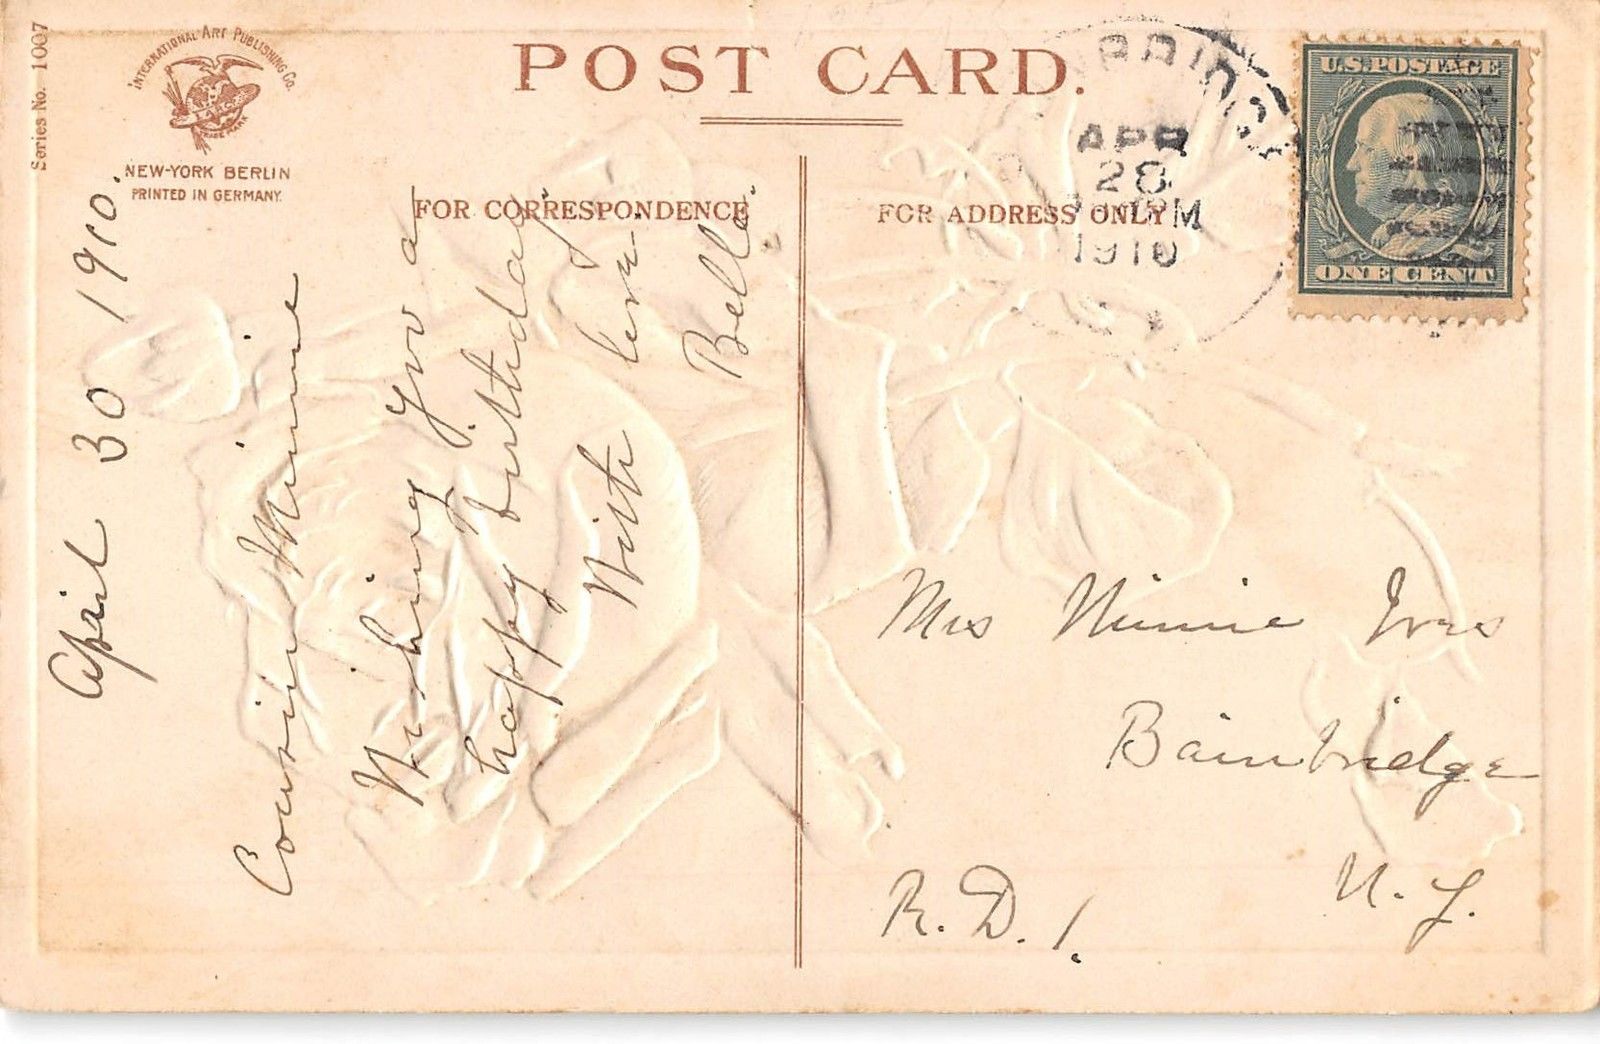 Series No. 1007
INTERNATIONAL ART PUBLISHING Co.
TRADE MARK
NEW-YORK BERLIN
PRINTED IN GERMANY.
POST CARD.
FOR CORRESPONDENCE
FOR ADDRESS ONLY
APR
28
M
1910
U.S. POSTAGE
ONE CENT
April 30 1910.
Cousin Minnie
Wishing you a
happy birthday.
With love
Bella.
Mrs Minnie Ives
Bainbridge
R. D. 1.
N. Y.